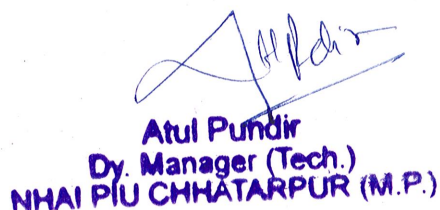 Atul Pundir
Dy. Manager (Tech.)
NHAI PIU CHHATARPUR (M.P.)